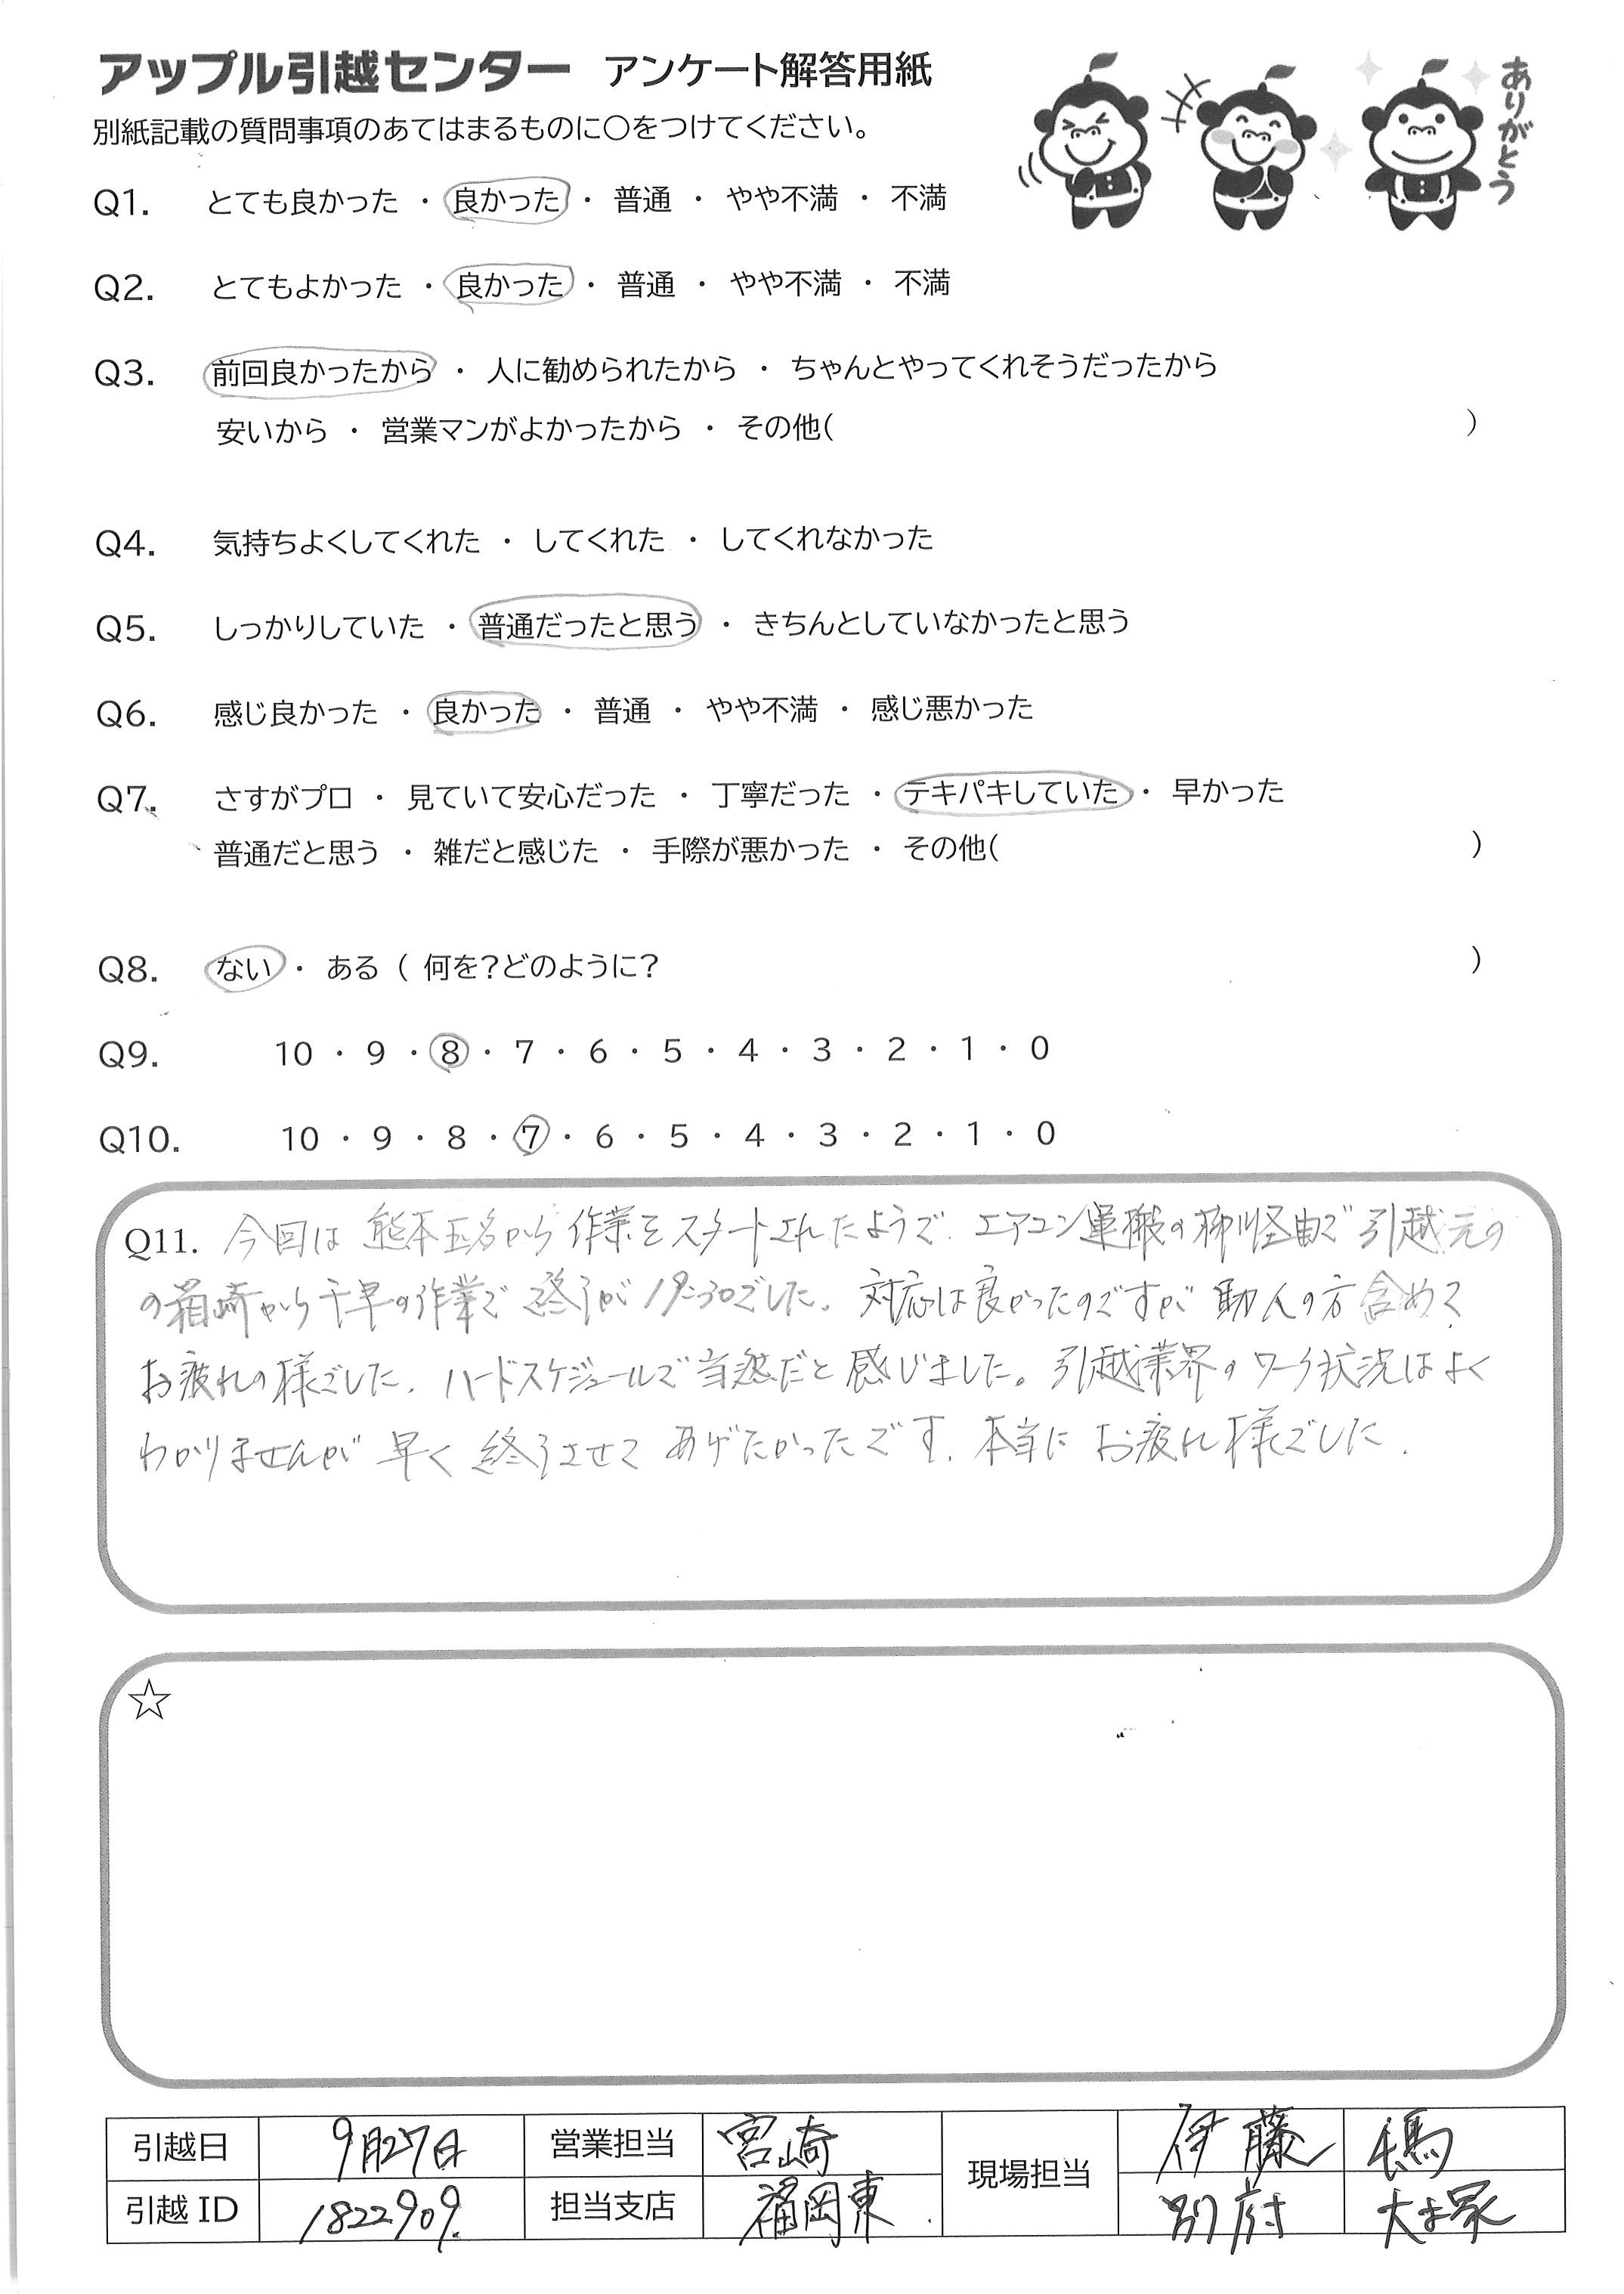 アップル引越センター アンケート解答用紙
別紙記載の質問事項のあてはまるものに○をつけてください。
ありがとう
Q1. とても良かった ・ 良かった ・ 普通 ・ やや不満 ・ 不満
Q2. とてもよかった ・ 良かった ・ 普通 ・ やや不満 ・ 不満
Q3. 前回良かったから ・ 人に勧められたから ・ ちゃんとやってくれそうだったから
安いから ・ 営業マンがよかったから ・ その他( )
Q4. 気持ちよくしてくれた ・ してくれた ・ してくれなかった
Q5. しっかりしていた ・ 普通だったと思う ・ きちんとしていなかったと思う
Q6. 感じ良かった ・ 良かった ・ 普通 ・ やや不満 ・ 感じ悪かった
Q7. さすがプロ ・ 見ていて安心だった ・ 丁寧だった ・ テキパキしていた ・ 早かった
普通だと思う ・ 雑だと感じた ・ 手際が悪かった ・ その他( )
Q8. ない ・ ある ( 何を?どのように? )
Q9. 10 ・ 9 ・ 8 ・ 7 ・ 6 ・ 5 ・ 4 ・ 3 ・ 2 ・ 1 ・ 0
Q10. 10 ・ 9 ・ 8 ・ 7 ・ 6 ・ 5 ・ 4 ・ 3 ・ 2 ・ 1 ・ 0
Q11. 今回は 熊本玉名から 作業をスタートされたようで、エアコン運搬の柳川経由で 引越元の
の箱崎から千早の作業で 終了が19:30でした。対応は良かったのですが 助人の方 含めて
お疲れの様でした。ハードスケジュールで当然だと感じました。引越業界のワーク状況はよく
わかりませんが 早く 終了させて あげたかったです。本当に お疲れ様でした。
☆
引越日 9月27日 営業担当 宮崎 現場担当 伊藤
引越ID 1822909. 担当支店 福岡東. 別府 大塚